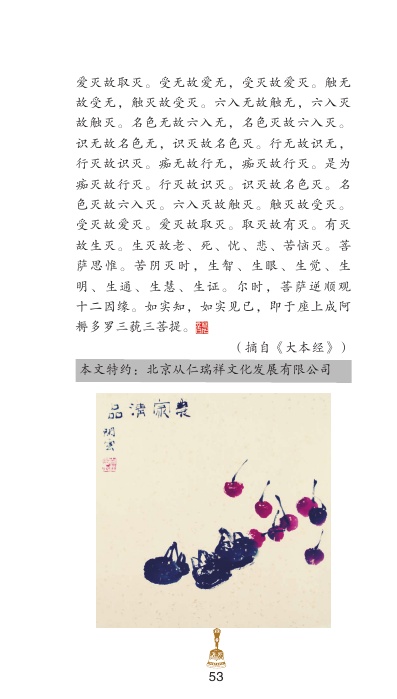 爱灭故取灭。受无故爱无，受灭故爱灭。触无
故受无，触灭故受灭。六入无故触无，六入灭
故触灭。名色无故六入无，名色灭故六入灭。
识无故名色无，识灭故名色灭。行无故识无，
行灭故识灭。痴无故行无，痴灭故行灭。是为
痴灭故行灭。行灭故识灭。识灭故名色灭。名
色灭故六入灭。六入灭故触灭。触灭故受灭。
受灭故爱灭。爱灭故取灭。取灭故有灭。有灭
故生灭。生灭故老、死、忧、悲、苦恼灭。菩
萨思惟。苦阴灭时，生智、生眼、生觉、生
明、生通、生慧、生证。尔时，菩萨逆顺观
十二因缘。如实知，如实见已，即于座上成阿
耨多罗三藐三菩提。
（摘自《大本经》）
本文特约：北京从仁瑞祥文化发展有限公司
品清家农
53